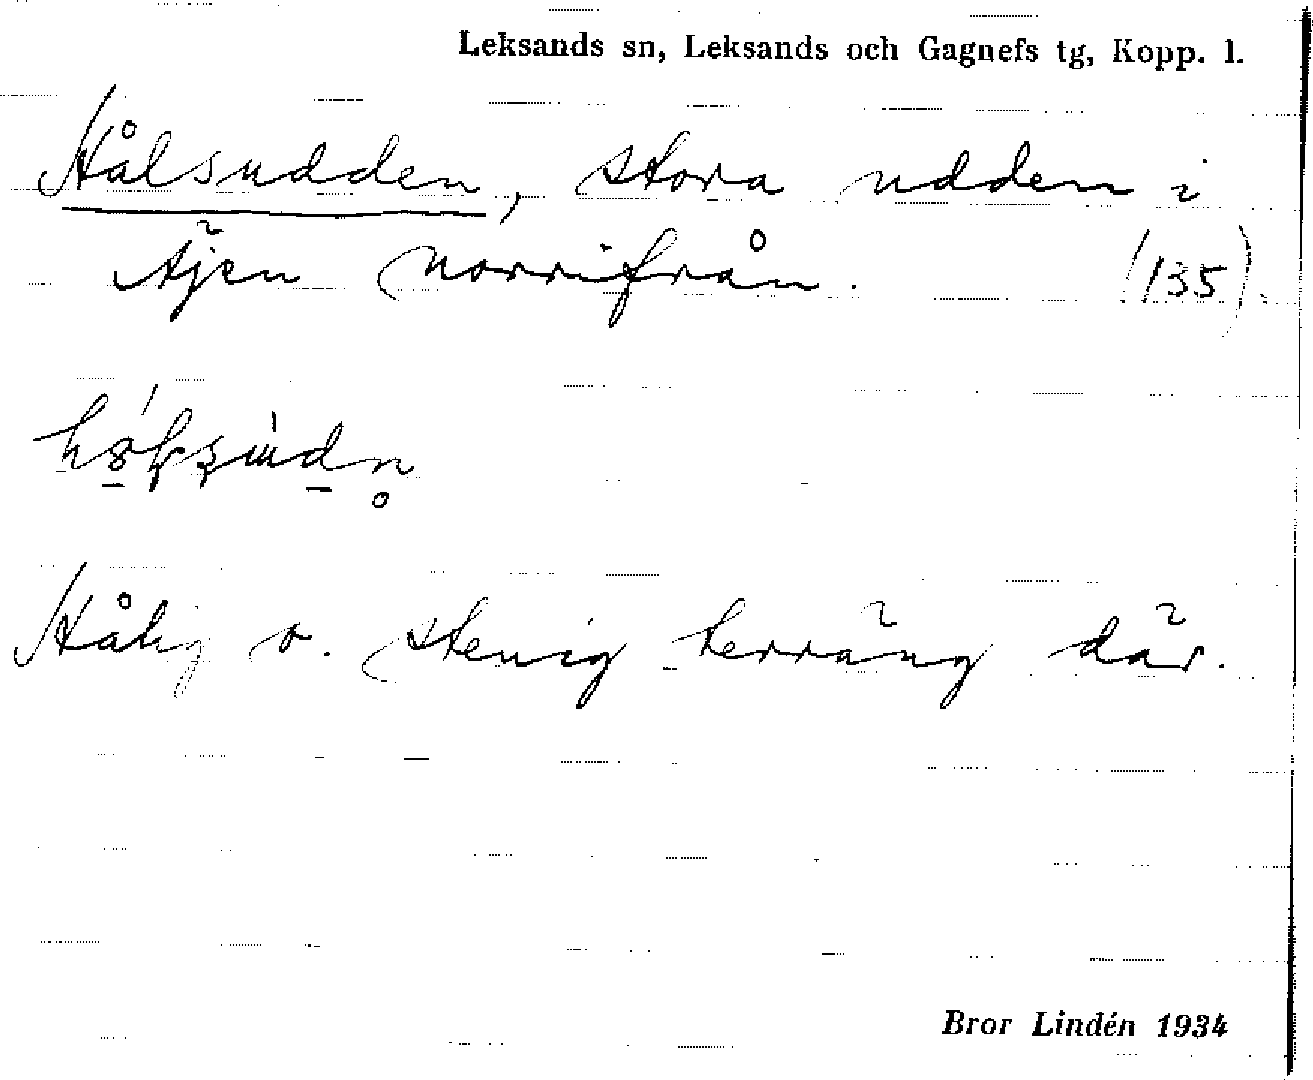 Leksands sn, Leksands och Gagnefs tg, Kopp. l.
Hålsudden, stora udden i
Äjen norrifrån. (135).
Hålig o. stenig terräng där.
Bror Lindén 1934